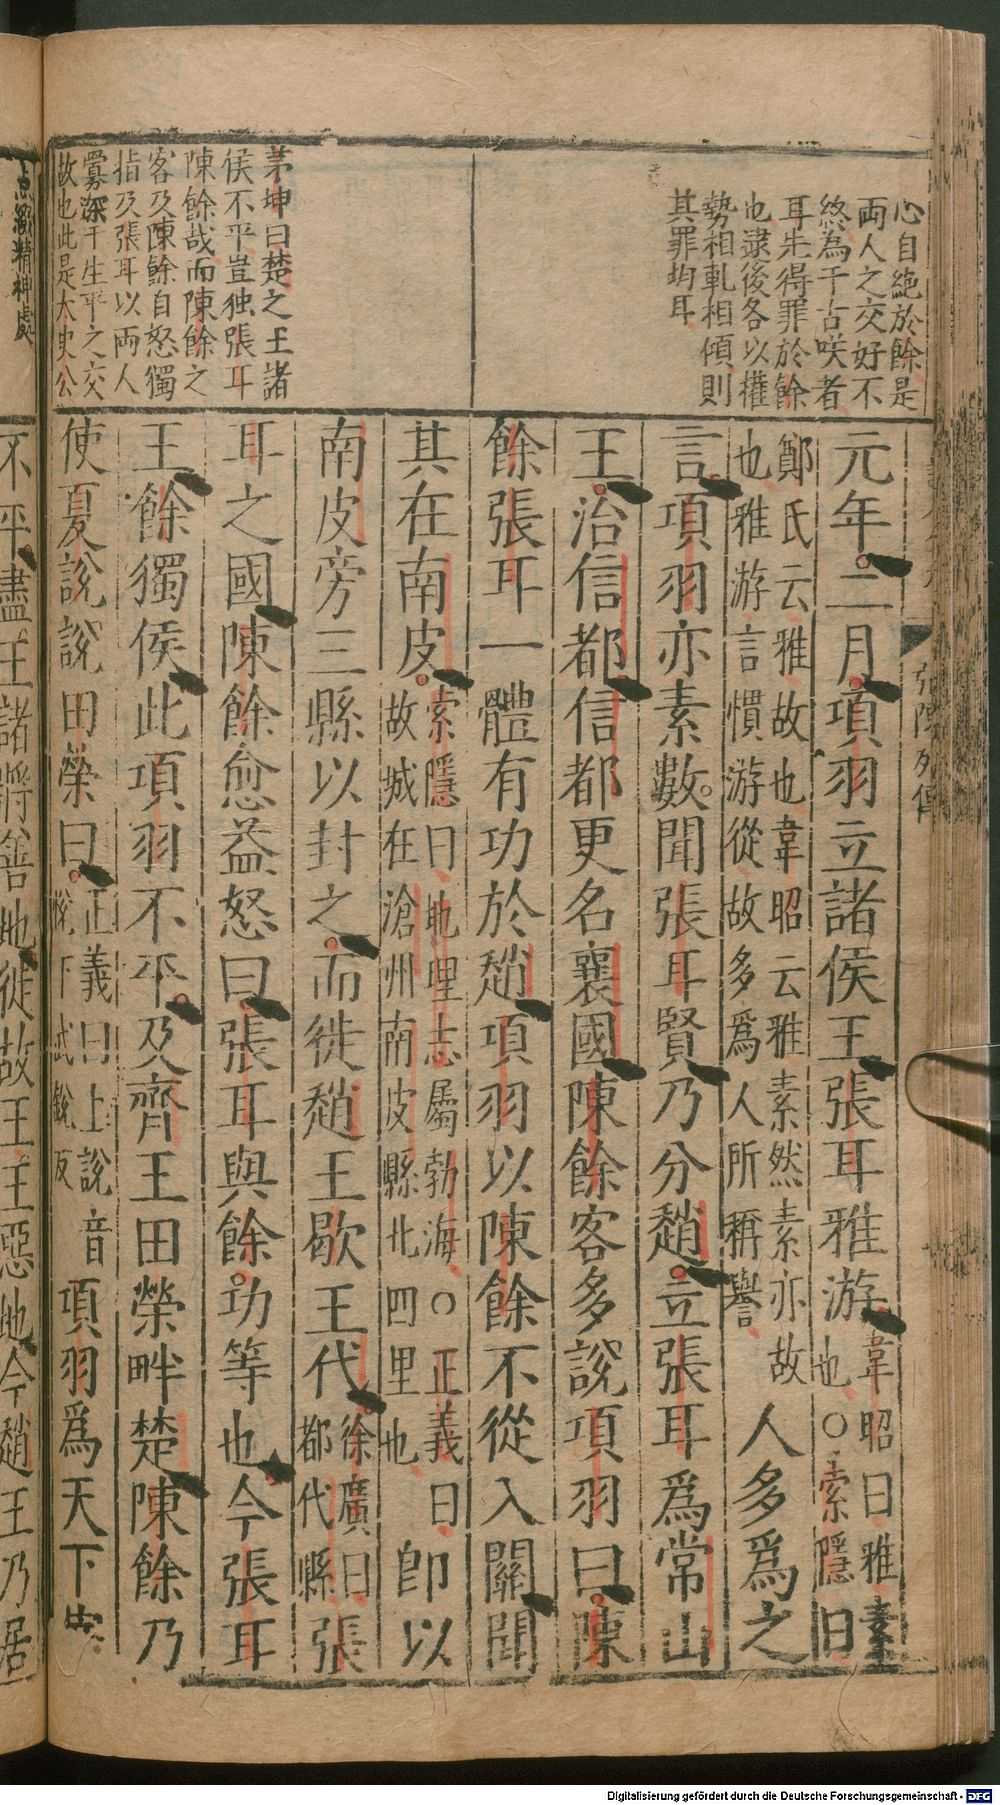 心自絶於餘是
兩人之交好不
終為千古咲者
耳先得罪於餘
也逮後各以權
勢相軋相傾則
其罪均耳
茅坤曰楚之王諸
侯不平豈独張耳
陳餘哉而陳餘之
客及陳餘自怒獨
指及張耳以兩人
釁深于生平之交
故也此是太史公
点激精神處
張陳列傳
元年二月項羽立諸侯王張耳雅游韋昭曰雅素也○索隱曰
鄭氏云雅故也韋昭云雅素然素亦故也雅游言慣游從故多爲人所稱譽人多爲之
言項羽亦素數聞張耳賢乃分趙立張耳爲常山
王治信都信都更名襄國陳餘客多說項羽曰陳
餘張耳一體有功於趙項羽以陳餘不從入關聞
其在南皮索隱曰地理志屬勃海○正義曰故城在滄州南皮縣北四里也卽以
南皮旁三縣以封之而徙趙王歇王代徐廣曰都代縣張
耳之國陳餘愈益怒曰張耳與餘功等也今張耳
王餘獨侯此項羽不平及齊王田榮畔楚陳餘乃
使夏說說田榮曰正義曰上說音悅下式銳反項羽爲天下宰
不平盡王諸將善地徙故王王惡地今趙王乃居
Digitalisierung gefördert durch die Deutsche Forschungsgemeinschaft - DFG